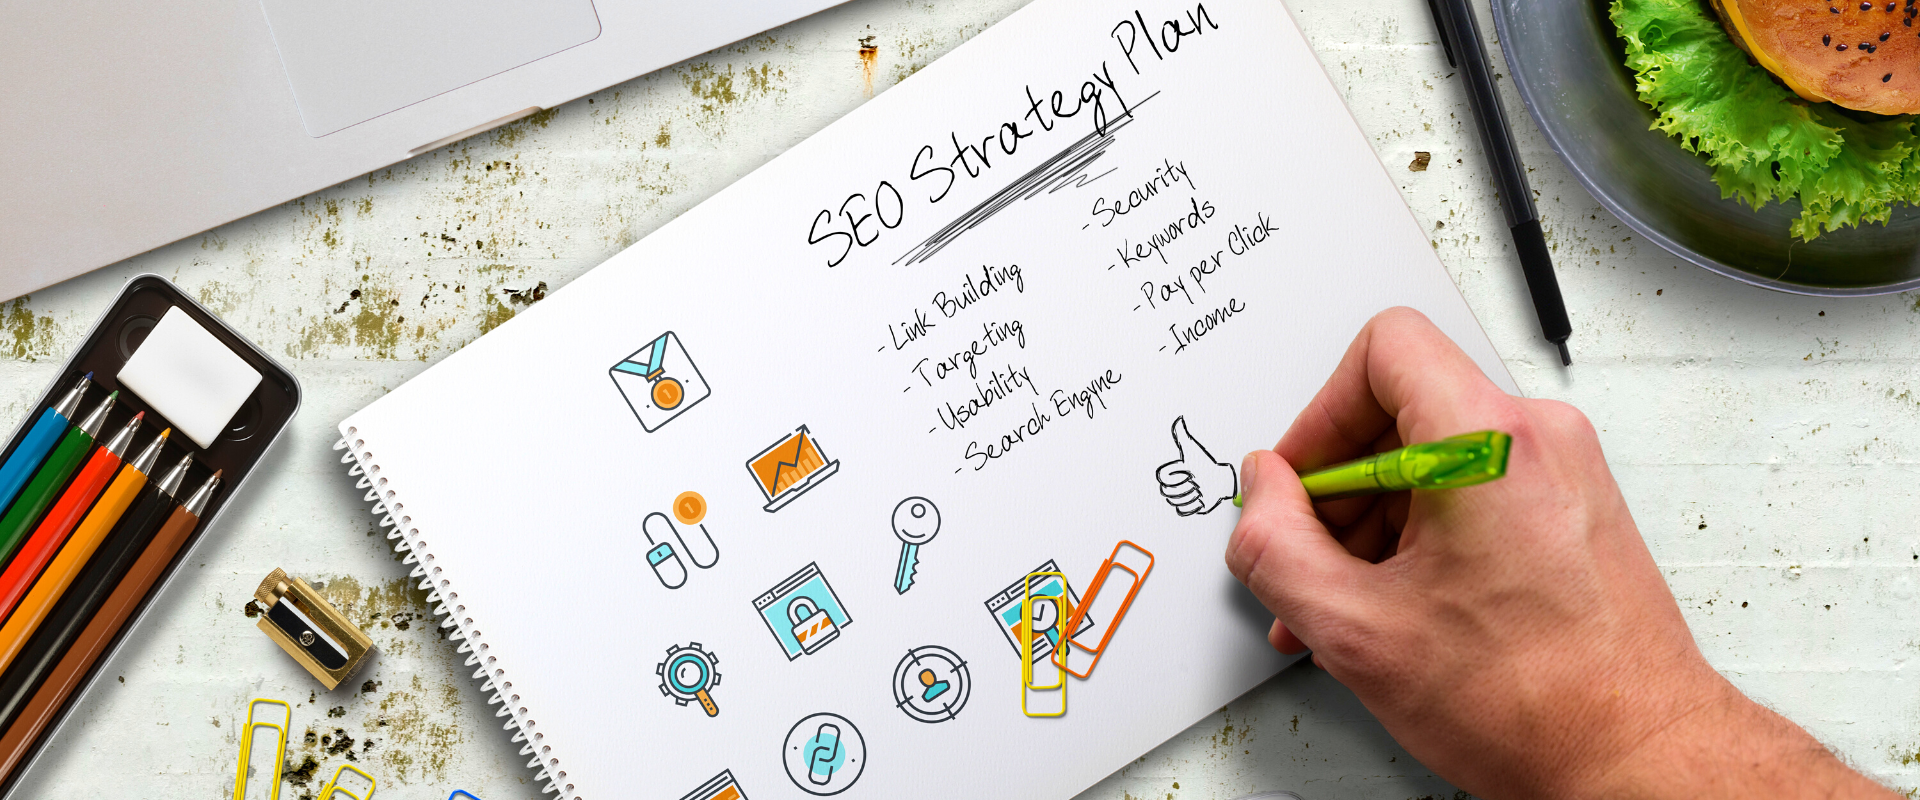 SEO Strategy Plan
- Link Building
- Targeting
- Usability
- Search Engyne
- Security
- Keywords
- Pay per Click
- Income
1
1